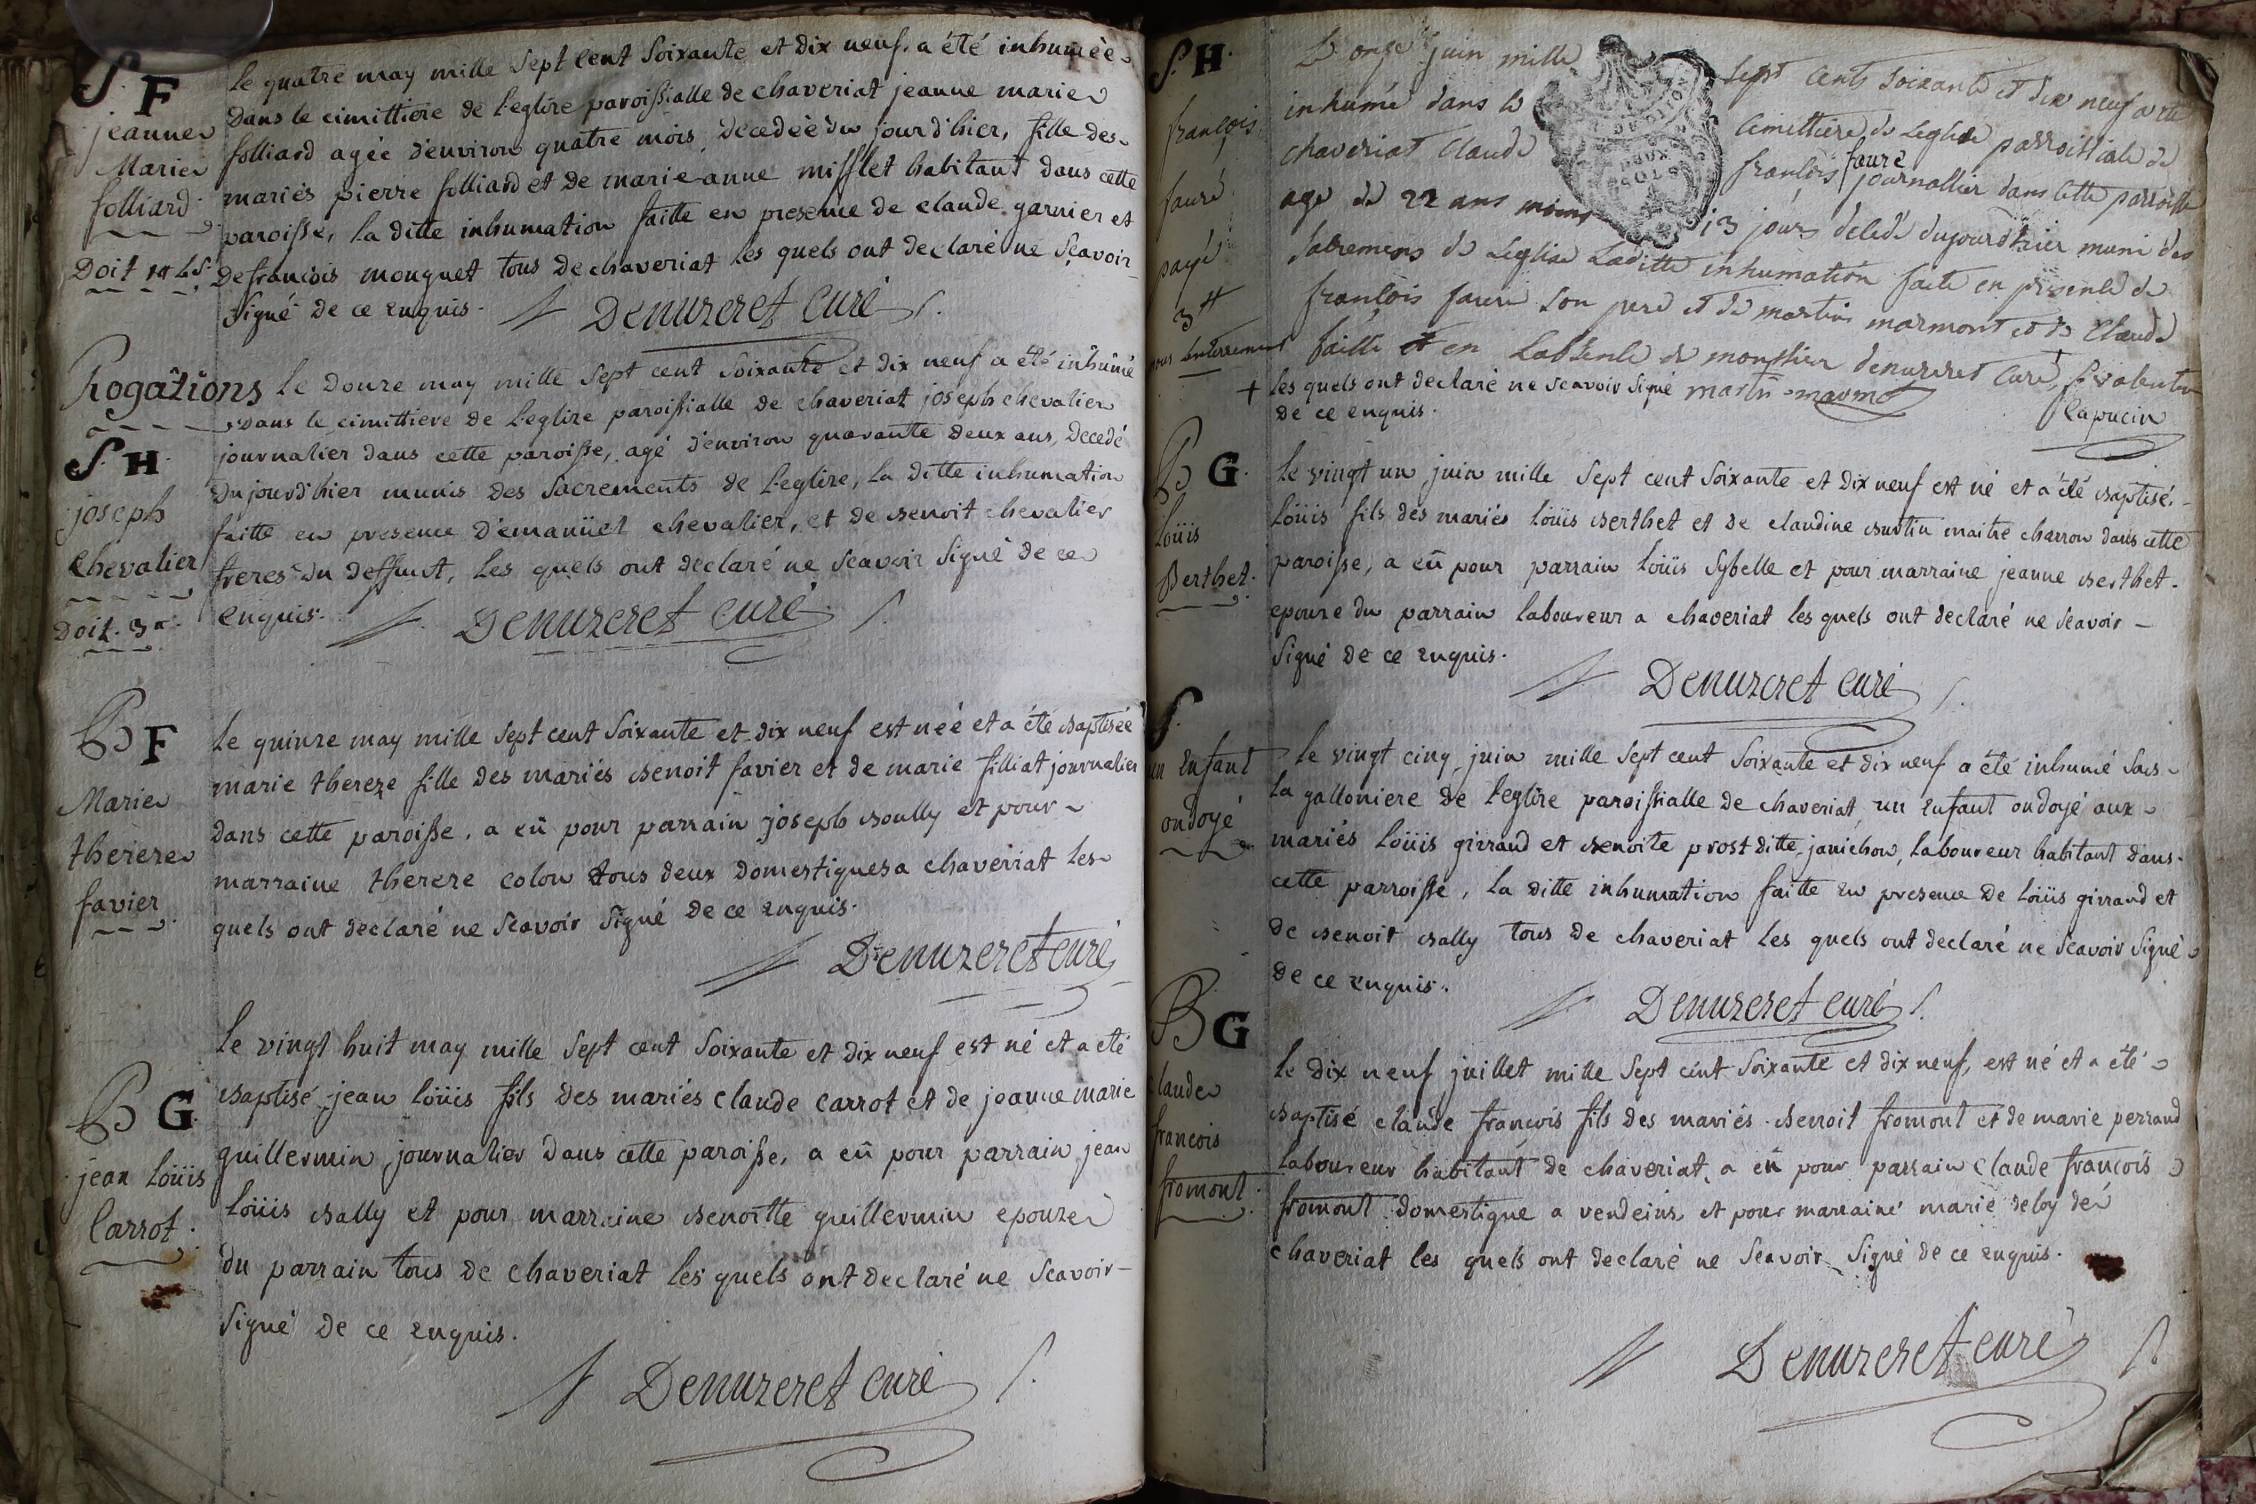 S F
jeanne
Marie
folliard
Doit
le quatre may mille sept cent soixante et dix neuf, a été inhumée
dans le cimittiere de l'eglise paroissialle de chaveriat jeanne marie
folliard agée d'environ quatre mois, decedée du jourd'hier, fille des
mariés pierre folliard et de marie anne mifflet habitant dans cette
paroisse, la ditte inhumation faitte en presence de claude garnier et
de francois monguet tous de chaveriat les quels ont declaré ne sçavoir
signé de ce enquis.
Denuzeret Curé
Rogations
S. H
joseph
chevalier
Doit. 3
le douze may mille sept cent soixante et dix neuf a été inhumé
dans le cimittiere de l'eglise paroissialle de chaveriat joseph chevalier
journalier dans cette paroisse, agé d'environ quarante deux ans, decedé
du jourd'hier munis des sacrements de l'eglise, la ditte inhumation
faitte en presence d'emanüel chevalier, et de benoit chevalier
freres du deffunt, les quels ont declaré ne sçavoir signé de ce
enquis.
Denuzeret curé
B F
Marie
thereze
favier
le quinze may mille sept cent soixante et dix neuf est née et a été baptisée
marie thereze fille des mariés benoit favier et de marie filliat journalier
dans cette paroisse, a eü pour parrain joseph boully et pour
marraine thereze colon tous deux domestiques a chaveriat les
quels ont declaré ne sçavoir signé de ce enquis.
Denuzeret curé
B G
jean loüis
Carrot
le vingt huit may mille sept cent soixante et dix neuf est né et a été
baptisé jean loüis fils des mariés claude carrot et de jeanne marie
guillermin, journalier dans cette paroisse, a eü pour parrain jean
loüis bally et pour marraine benoitte guillermin epouze
du parrain tous de chaveriat les quels ont declaré ne sçavoir
signé de ce enquis.
Denuzeret curé
S. H.
françois
fauré
payé
3 ₶
enterrement
Le onze juin mille sept cents soixante et dix neuf a été
inhumé dans le cimittiere de Leglise parroissiale de
chaveriat Claude françois fauré journallier dans cette parroisse
age de 22 ans moins 13 jours decedé dujourdhier muni des
sacremens de Leglise Laditte inhumation faite en présence de
françois fauré son pere et de martin marmont et de Claude
faitte et en Labsence de monssieur denuzeret Curé, f. valentin
+ les quels ont declaré ne scavoir signé martin marmo
de ce enquis. Capucin
B G.
loüis
Berthet.
le vingt un juin mille sept cent soixante et dix neuf est né et a été baptisé,
loüis fils des mariés loüis berthet et de claudine burtin maitre charron dans cette
paroisse, a eü pour parrain loüis sybelle et pour marraine jeanne berthet
epouze du parrain laboureur a chaveriat les quels ont declaré ne sçavoir
signé de ce enquis.
Denuzeret curé
S.
un enfant
ondoyé
le vingt cinq juin mille sept cent soixante et dix neuf a été inhumé sous
la galloniere de l'eglise paroissialle de chaveriat, un enfant ondoyé aux
mariés loüis girraud et benoite prost ditte janichon, laboureur habitant dans
cette parroisse, la ditte inhumation faitte en presence de loüis girraud et
de benoit bally tous de chaveriat les quels ont declaré ne sçavoir signé
de ce enquis.
Denuzeret curé
B G
claude
francois
fromont.
le dix neuf juillet mille sept cent soixante et dix neuf, est né et a été
baptisé claude françois fils des mariés benoit fromont et de marie perraud
laboureur habitant de chaveriat, a eü pour parrain claude françois
fromont domestique a vendeins, et pour marraine marie deloy de
chaveriat les quels ont declaré ne sçavoir signé de ce enquis.
Denuzeret curé